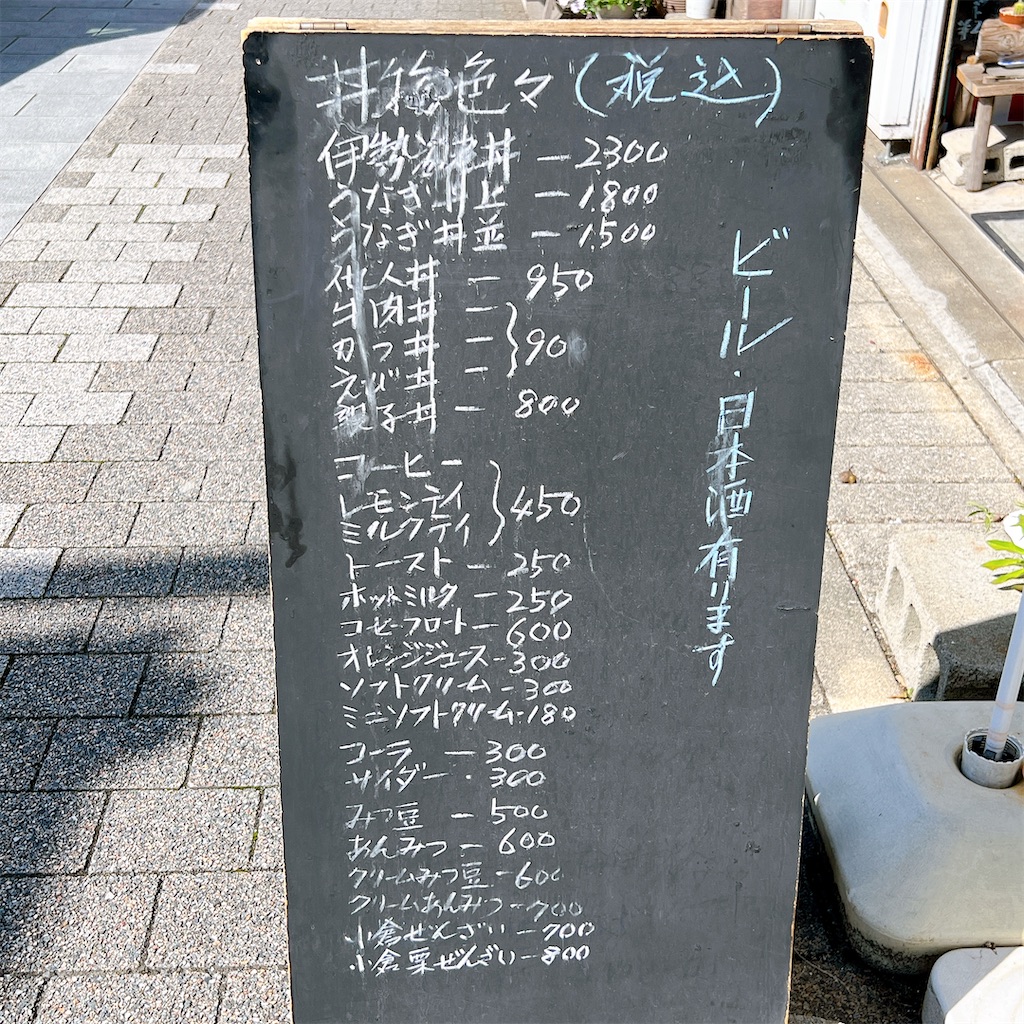 丼物色々(税込)
伊勢海老丼 ー 2300
うなぎ丼上 ー 1.800
うなぎ丼並 ー 1.500
他人丼 ー 950
牛肉丼 ー
かつ丼 ー } 90
えび丼 ー
親子丼 ー 800
コーヒー
レモンティ } 450
ミルクティ
トースト ー 250
ホットミルク ー 250
コーヒーフロート ー 600
オレンジジュース ー 300
ソフトクリーム ー 300
ミニソフトクリーム ー 180
コーラ ー 300
サイダー ・ 300
みつ豆 ー 500
あんみつ ー 600
クリームみつ豆 ー 600
クリームあんみつ ー 700
小倉ぜんざい ー 700
小倉栗ぜんざい ー 800
ビール・日本酒有ります